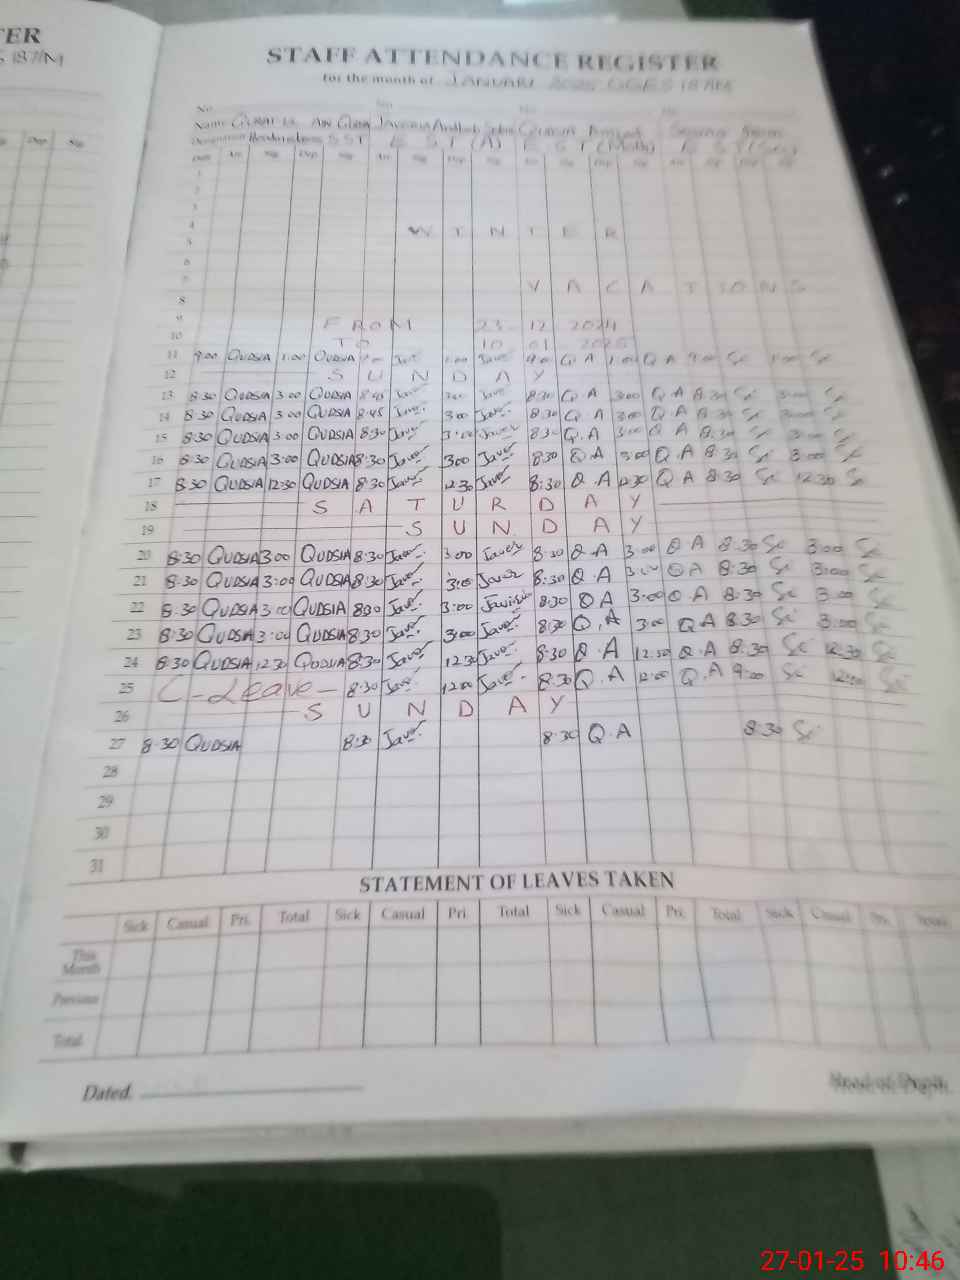 TER
187/M
STAFF ATTENDANCE REGISTER
for the month of JANUARY 2025 GGES 187/M
No No No No
Name Javeria Qurat
Headmistress SST E S T (A) E.S.T (Math) E S T (Sci)
Date Arr Sig Dep Sig Arr Sig Dep Sig Arr Sig Dep Sig Arr Sig Dep Sig
1
2
3
4 WINTER
5
6
7 VACATIONS
8
9 FROM 23-12-2024
10 TO 10 01 2025
11 9:00 QUDSIA 1:00 QUDSIA 9:00 Jave 1:00 Jave 9:00 Q A 1:00 Q A 9:00 Sc 1:00 Sc
12 SUNDAY
13 8:30 QUDSIA 3:00 QUDSIA 8:45 Jave 3:00 Jave 8:30 Q A 3:00 Q A 8:30 Sc 3:00 Sc
14 8:30 QUDSIA 3:00 QUDSIA 8:45 Jave 3:00 Jave 8:30 Q A 3:00 Q A 8:30 Sc 3:00 Sc
15 8:30 QUDSIA 3:00 QUDSIA 8:30 Jave 3:00 Jave 8:30 Q.A 3:00 Q A 8:30 Sc 3:00 Sc
16 8:30 QUDSIA 3:00 QUDSIA 8:30 Jave 3:00 Jave 8:30 Q.A 3:00 Q A 8:30 Sc 3:00 Sc
17 8:30 QUDSIA 12:30 QUDSIA 8:30 Jave 12:30 Jave 8:30 Q.A 12:30 Q A 8:30 Sc 12:30 Sc
18 SATURDAY
19 SUNDAY
20 8:30 QUDSIA 3:00 QUDSIA 8:30 Jave 3:00 Jave 8:30 Q.A 3:00 Q A 8:30 Sc 3:00 Sc
21 8:30 QUDSIA 3:00 QUDSIA 8:30 Jave 3:00 Jave 8:30 Q.A 3:00 Q A 8:30 Sc 3:00 Sc
22 8:30 QUDSIA 3:00 QUDSIA 8:30 Jave 3:00 8:30 Q A 3:00 Q A 8:30 Sc 3:00 Sc
23 8:30 QUDSIA 3:00 QUDSIA 8:30 Jave 3:00 Jave 8:30 Q.A 3:00 Q A 8:30 Sc 3:00 Sc
24 8:30 QUDSIA 12:30 QUDSIA 8:30 Jave 12:30 Jave 8:30 Q.A 12:30 Q.A 8:30 Sc 12:30 Sc
25 C-Leave- 8:30 Jave 12:00 Jave 8:30 Q.A 12:00 Q.A 9:00 Sc 12:00 Sc
26 SUNDAY
27 8:30 QUDSIA 8:30 Jave 8:30 Q.A 8:30 Sc
28
29
30
31
STATEMENT OF LEAVES TAKEN
Sick Casual Pri. Total Sick Casual Pri Total Sick Casual Pri. Total Sick Casual Pri. Total
This Month
Previous
Total
Dated. Head of Deptt.
27-01-25 10:46